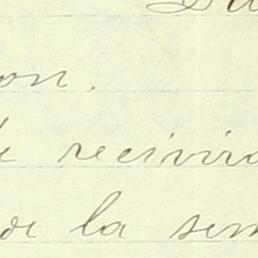 on.
recivira
de la sem